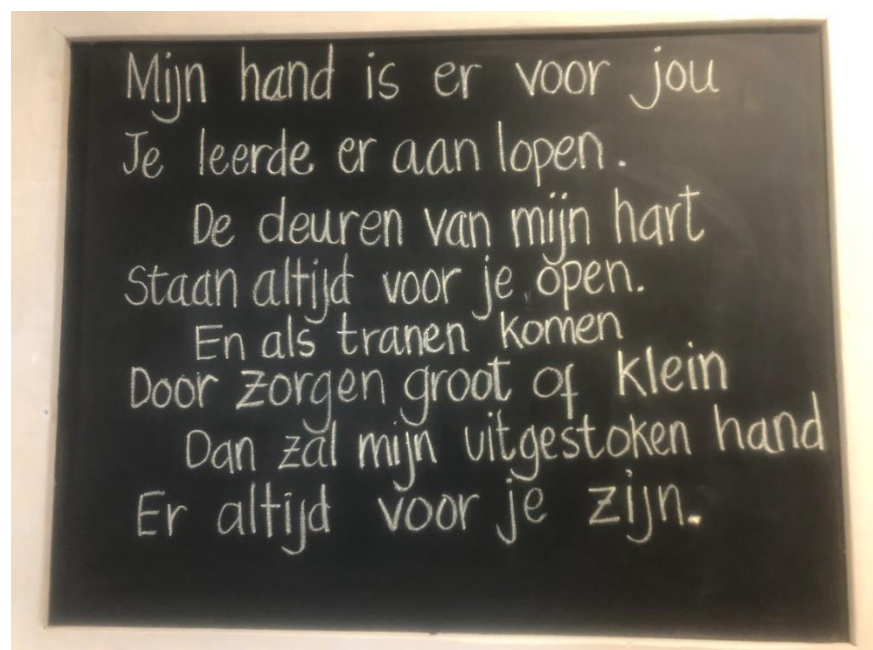 Mijn hand is er voor jou
Je leerde er aan lopen.
De deuren van mijn hart
Staan altijd voor je open.
En als tranen komen
Door zorgen groot of klein
Dan zal mijn uitgestoken hand
Er altijd voor je zijn.